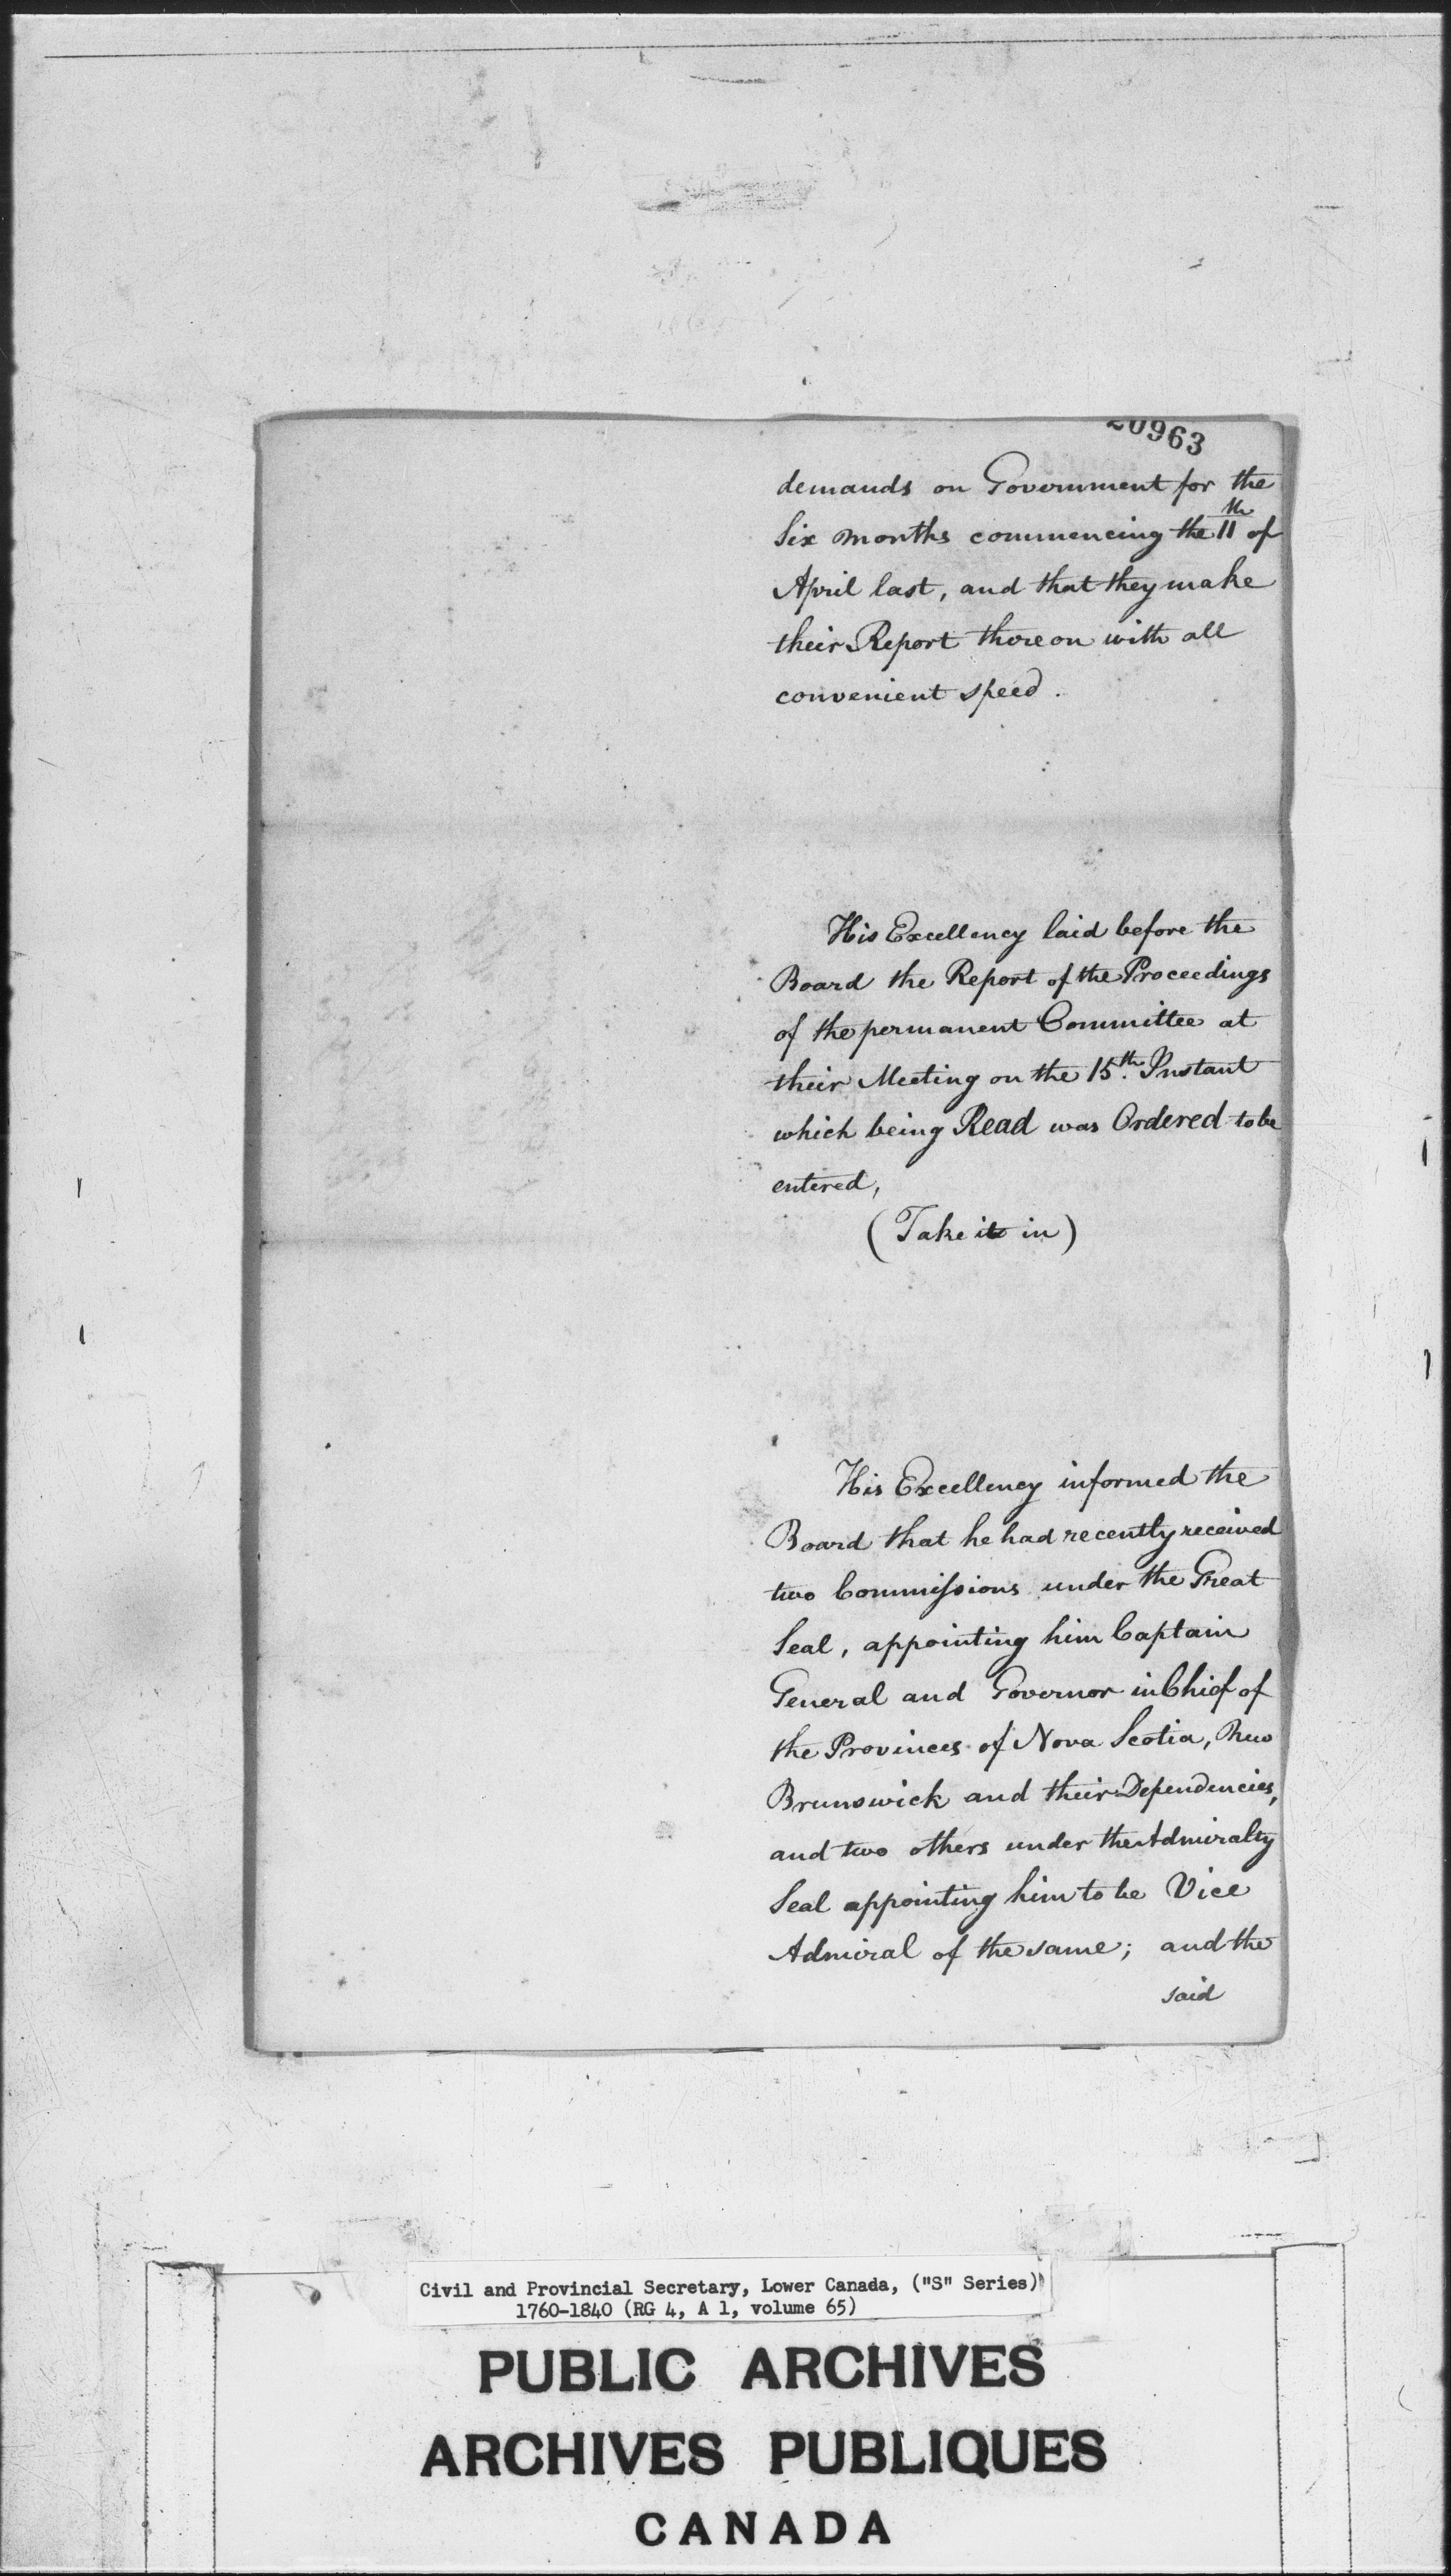 20963
demands on Government for the
Six months commencing the 11th of
April last, and that they make
their Report thereon with all
convenient speed.
His Excellency laid before the
Board the Report of the Proceedings
of the permanent Committee at
their Meeting on the 15th. Instant
which being Read was Ordered to be
entered,
(Take it in)
His Excellency informed the
Board that he had recently received
two Commissions under the Great
Seal, appointing him Captain
General and Governor in Chief of
the Provinces of Nova Scotia, New
Brunswick and their Dependencies,
and two others under the Admiralty
Seal appointing him to be Vice
Admiral of the same; and the
said
Civil and Provincial Secretary, Lower Canada, ("S" Series)
1760-1840 (RG 4, A 1, volume 65)
PUBLIC ARCHIVES
ARCHIVES PUBLIQUES
CANADA